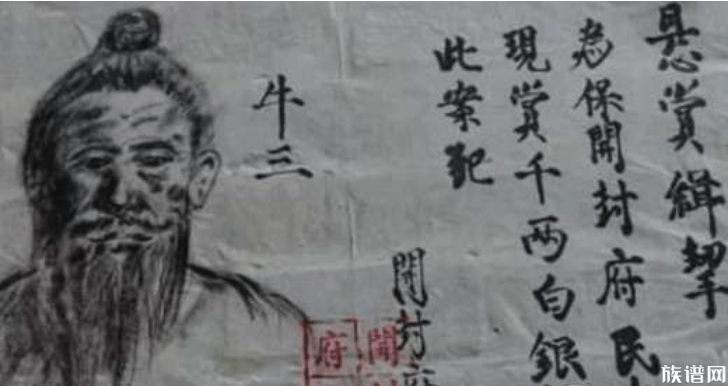 悬赏缉拏
为保開封府民
現賞千两白銀
此案犯
牛三
開封府
開
府
族谱网